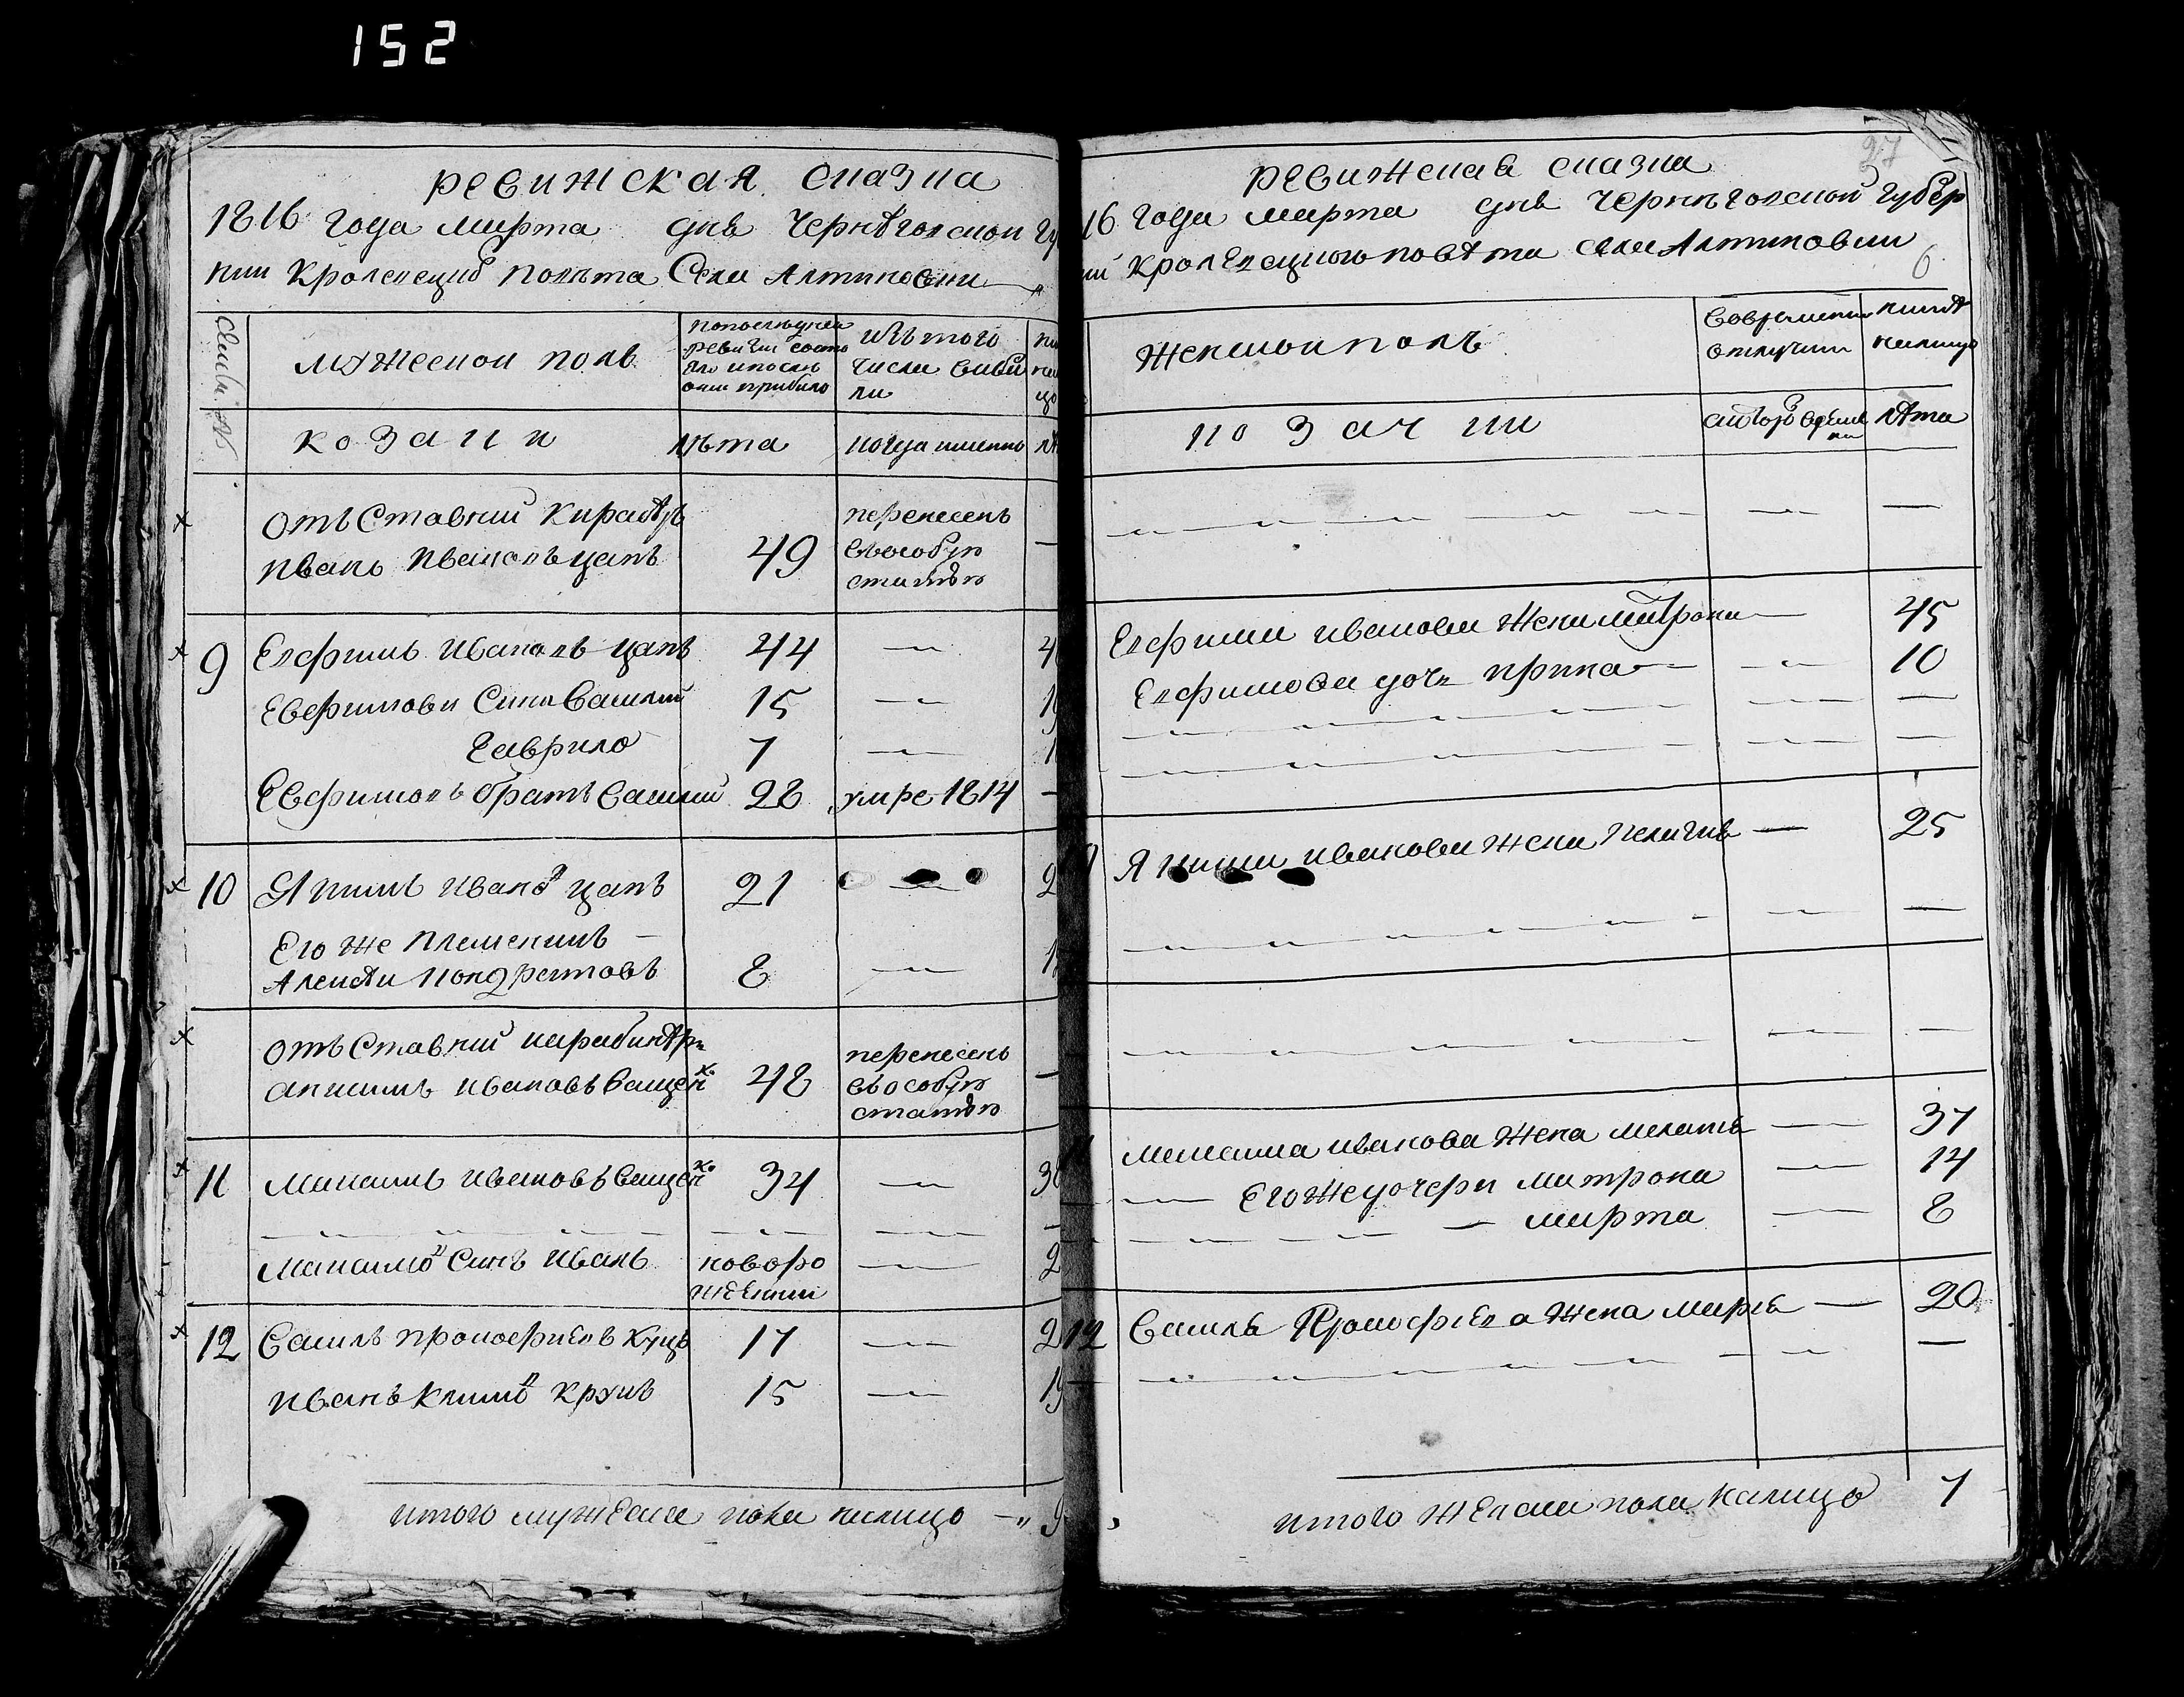 152
ревижская сказка
1816 года марта дня Черниговской гу
нии Кролевецкого Повѣта Села Алтиновки
Семьи №
мужеской полъ
по последней ревизии состояло и после оной прибыло
изъ того числа выбыли
козаки
лѣта
когда именно
отъставний Кирасѣръ
Иванъ Ивановъ цапъ
49
перенесенъ въ особую статью
9
Евфимъ Ивановъ цапъ
44
Евфимови Сини Василий
15
Гаврило
7
Евфимовъ братъ Василий
28
умре 1814
10
Якимъ Ивановъ цапъ
21
Его же племенникъ
Алексѣй Кондратовъ
8
отъставний карабинѣръ
Анисимъ Ивановъ Ващенко
48
перенесенъ въ особую статью
11
Максимъ Ивановъ Ващенко
34
Максимовъ Синъ Иванъ
новорожденний
12
Василь Прокофиевъ Куцъ
17
Иванъ Климовъ Крукъ
15
итого мужеска пола налицо
27
ревижская сказка
16 года марта дня Черниговской губер
ии Кролевецкого повѣта села Алтиновки
6
Женской полъ
во временной отлучке
ныне налицо
козачки
с которого времени
лѣта
Евфима Иванова жена Митрона
45
Евфимова дочь Ирина
10
Якима Иванова жена Пелагия
25
Максима Иванова жена Мелания
37
Его же дочери Митрона
14
Марта
8
12
Василя Прокофиева жена Марья
20
итого женска пола налицо
7